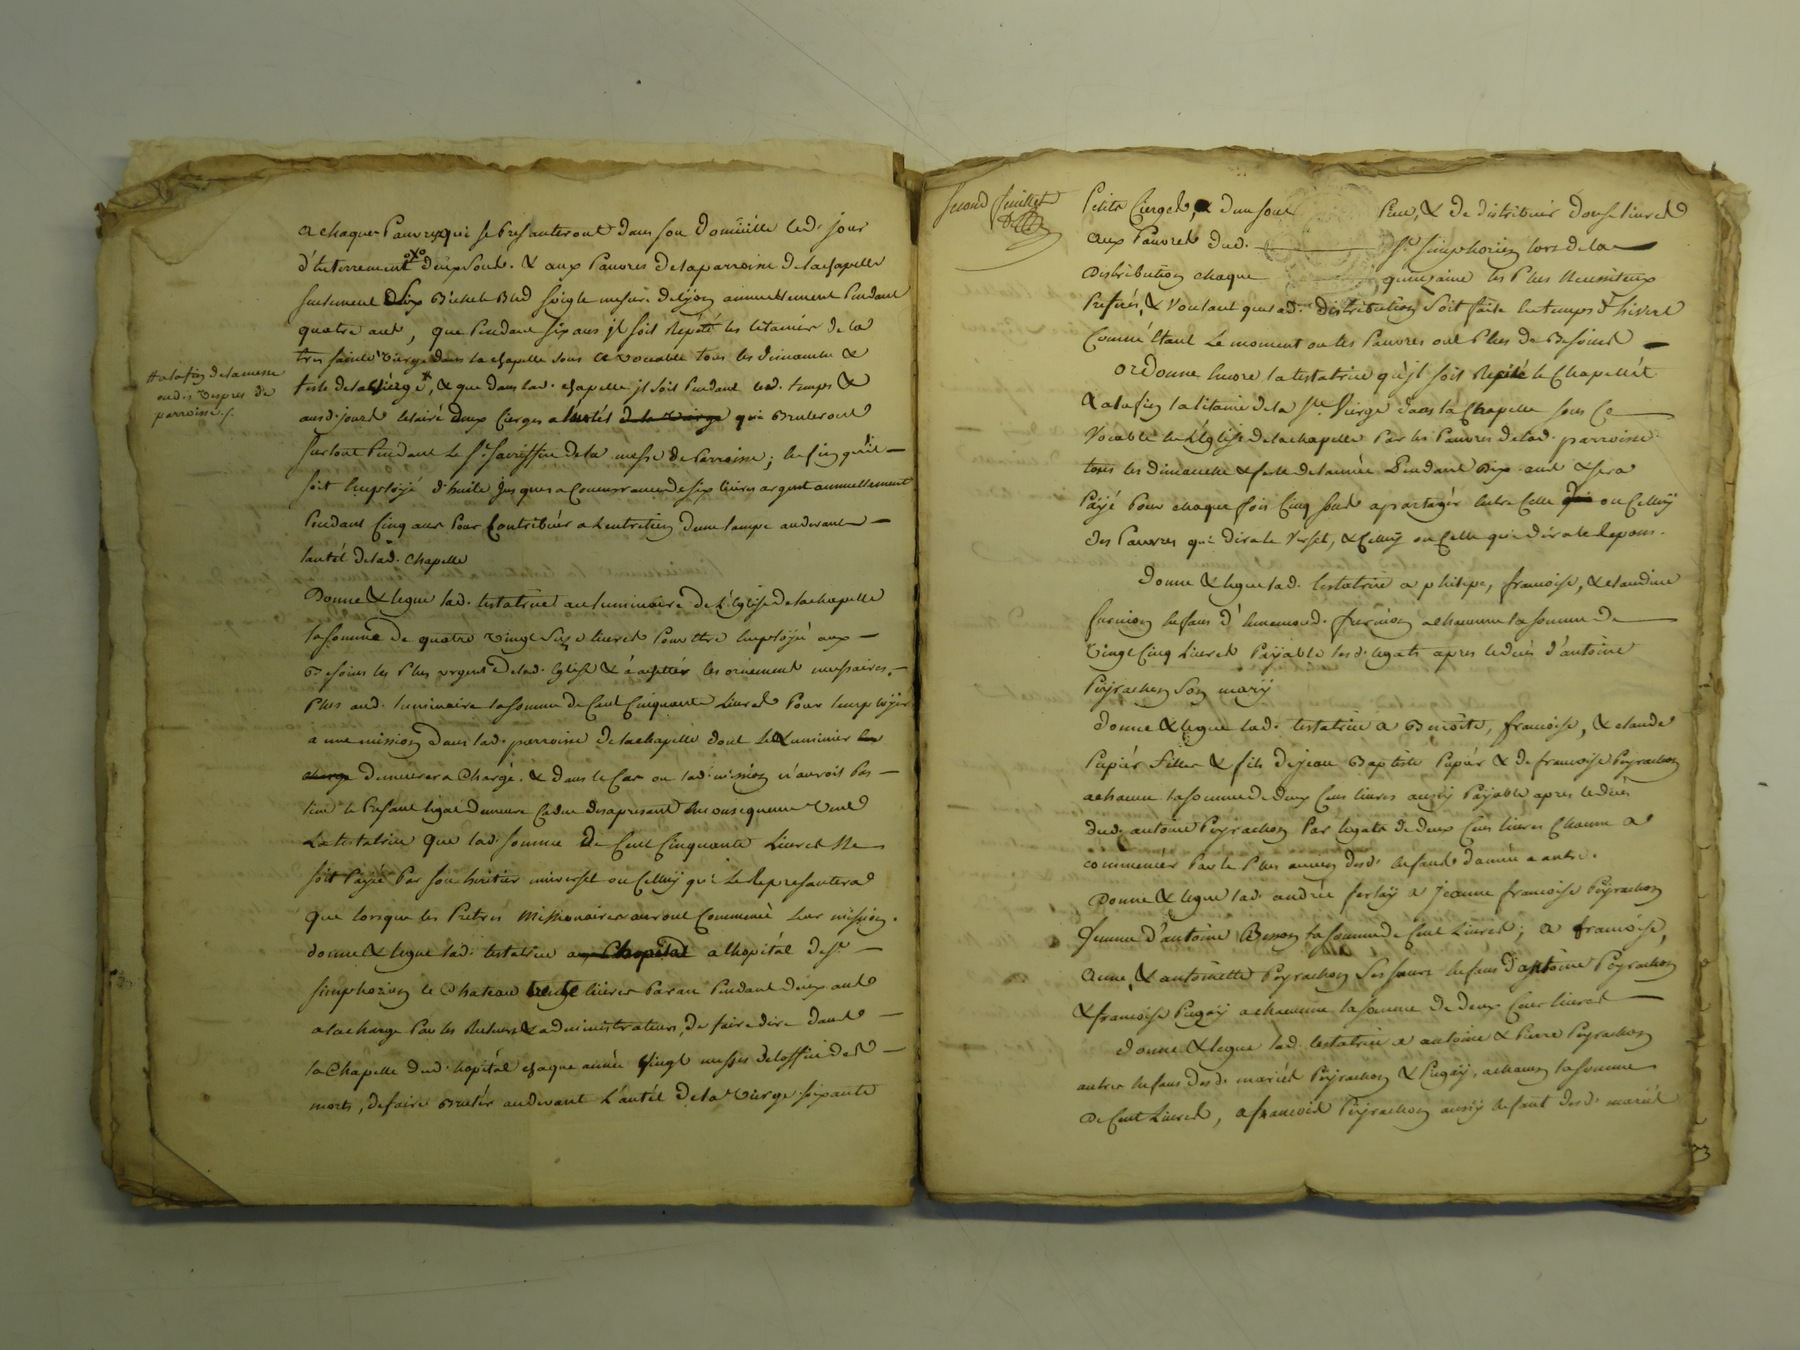 a chaques Pauvres qui se presanteront dans son domicille led. jour
d'enterrement deux sous. & aux Pauvres de la parroisse de la chapelle
seulement dix Bichets Bled seigle mesure de lyon annuellement Pendant
quatre ans, que Pendant six ans jl soit Repété les litanies de la
tres sainte vierge dans la chapelle sous ce vocable tous les dimanche &
feste de la vierge, & que dans lad. chapelle jl soit Pendant led. temps &
auxd. jours eclairé deux Cierges a l'autél de la vierge qui Bruleront
surtout Pendant le St. sacriffice de la messe de Parroisse; enfin qu'il
soit Employé d'huile jusques a Concurrance de six livres argent annuellement
Pendant Cinq ans Pour Contribuér a l'entretien d'une lampe au devant
lautél de lad. Chapelle
Donne & legue lad. testatrice au luminaire de L'Eglise de la chapelle
la somme de quatre vingt seize livres Pour Etre Employé aux
Besoins les Plus urgents de lad. Eglise & a achettér les ornement necessaires.
Plus aud. luminaire la somme de Cent Cinquante Livres Pour Employér
a une mission dans lad. parroisse de la chapelle dont le Luminier en
charge demeurera Chargé. & dans le Cas ou lad. mission n'auroit Pas
lieu le Presant legat demeure Caduc des apresant En consequence veut
La testatrice que lad. somme de Cent Cinquante Livres Ne
soit Payée Par son heritier universel ou Celluy qui Le Represantera
que lorsque les Prêtres Missionaires auront Commencé leur mission.
donne & legue lad. testatrice au Chopital a lhopitál de St.
simphorien le Chateau trente livres Par an Pendant deux ans
a la charge Par les Recteurs & administrateurs, de faire dire dans
la Chapelle dud. hopitál chaque année vingt messes de loffice des
morts, de faire Brulér au devant L'autél de la vierge soixante
a la fin de la messe
ou des vespres de
parroisse
second feuillet
Petits Cierges, & d'un sous Piece, & de distribuér douse livres
aux Pauvres dud. St. simphorien lors de la
distribution chaque quinsaine les Plus Necessiteux
Preferés, & Voulant que lad. distribution soit faite En temps d'hiver
Comme Etant Le moment ou les Pauvres ont Plus de Besoins
ordonne Encore la testatrice qu'jl soit Recité le Chapellét
& a la fin la litanie de la Ste. Vierge dans la Chapelle sous Ce
Vocable En L'Eglise de la chapelle Par les Pauvres de lad. parroisse
tous les dimanche & feste de lannée Pendant dix ans & sera
Payé Pour chaque fois Cinq sous a partagér Entre Celle ou Celluy
des Pauvres qui dira le Verset, & Celluy ou Celle qui dira le Repons.
donne & legue lad. testatrice a philipe, francoise, & claudine
furnion Enfans d'Ennemond furnion a chacune la somme de
vingt Cinq Livres Payable lesd. legats apres le deces d'antoine
Peyrachon son mary
donne & legue lad. testatrice a Benoite, francoise, & claude
Pupiér filles & fils de jean Baptiste Pupiér & de francoise Peyrachon
a chacun la somme de deux Cens livres aussy Payable apres le deces
dud. antoine Peyrachon Par legats de deux Cens livres Chacun a
commencér Par le Plus ancien desd. Enfans d'année a autre.
Donne & legue lad. andrée ferlay a jeanne francoise Peyrachon
femme d'antoine Besson la somme de Cent Livres; a francoise,
anne, & antoinette Peyrachon ses sœurs Enfans d'antoine Peyrachon
& francoise Pugay a chacunne la somme de deux Cens livres
donne & legue lad. testatrice a antoine & Pierre Peyrachon
autres Enfans desd. mariés Peyrachon & Pugay, a chacun la somme
de Cent Livres, a francois Peyrachon aussy Enfant desd. mariés